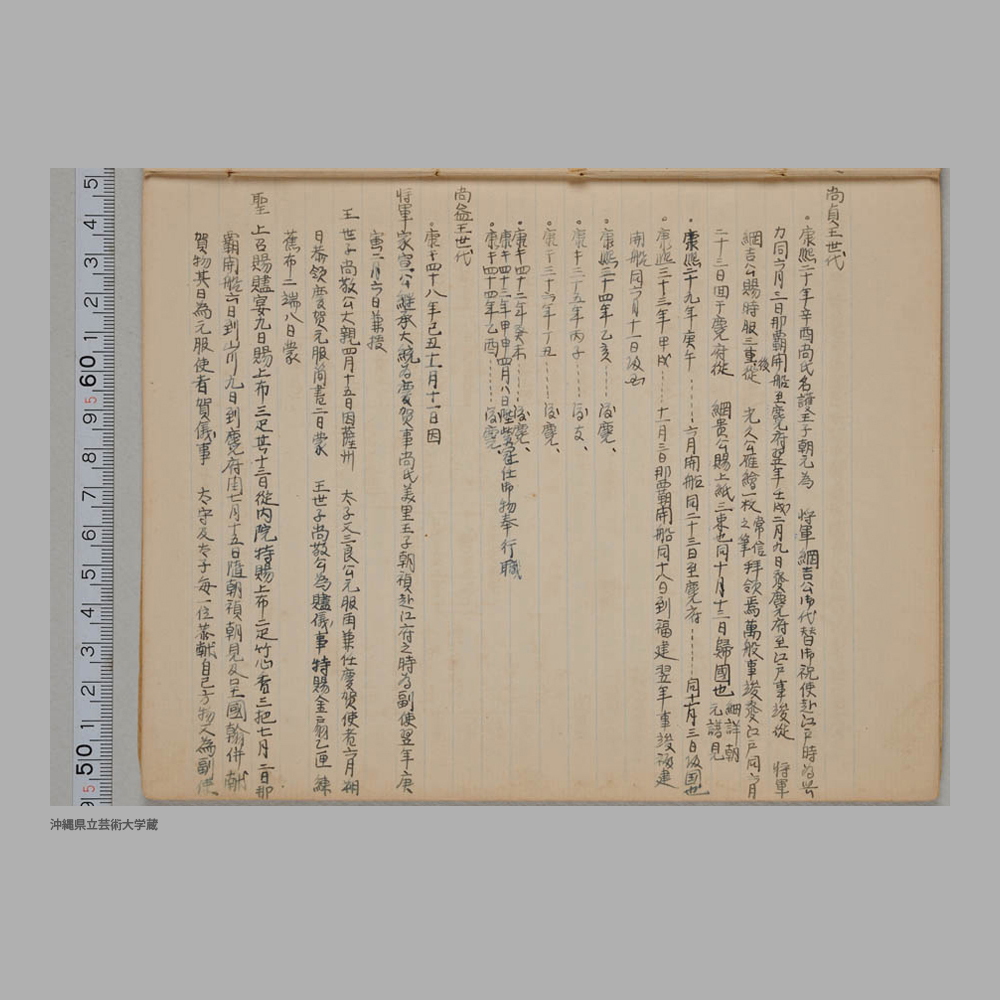 尚貞王世代
。康熙二十年辛酉尚氏名護王子朝元為 将軍綱吉公御代替御祝使赴江戸時為
力同六月三日那覇開船至麑府翌年壬戌二月九日発麑府至江戸事竣従 将軍
綱吉公賜時服三重従後 光久公 絵一枚常信之筆拝領焉萬般事竣発江戸同六月
二十三日回于麑府従 綱貴公賜上紙三束也同十月十三日歸國也細詳朝元譜見
。康熙二十九年庚午……六月開船同二十三日至麑府……同十一月三日皈国也
。康熙三十三年甲戌……十一月三日那覇開船同十八日到福建翌年事竣福建
開船同六月十一日皈
。康熙三十四年乙亥……麑、
。康〃三十五年丙子……
。康〃三十六年丁丑……麑、
。康〃四十二年癸未……麑、
康〃四十三年甲申四月八日 御物奉行職
。康〃四十四年乙酉……麑、
尚益王世代
。康〃四十八年己丑十一月十一日因
将軍家宣公継承大統為慶賀事尚氏美里王子朝禎赴江府之時為副使翌年庚
寅二月六日兼授
王 世子尚敬公大親四月十五日因薩州 太子又三良公元服兼任慶賀使者六月朔
日恭領慶賀元服 書二日蒙 王世子尚敬公為贐儀事特賜金扇乙匣練
蕉布二端八日蒙
聖上召賜贐宴九日賜上布三疋其十三日従内院特賜上布二疋竹心香三把七月二日那
覇開船六日到山川九日到麑府閏七月十五日随朝禎朝見及呈國翰併献
賀物其日為元服使者賀儀事 太守及太子毎一位恭献自己方物又為副使
沖縄県立芸術大学蔵